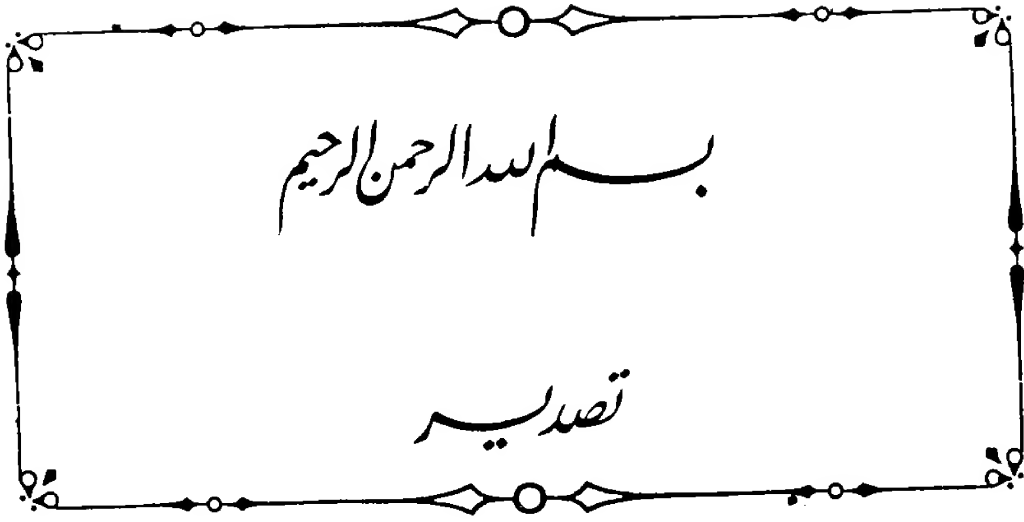 بسم الله الرحمن الرحيم
تصدير